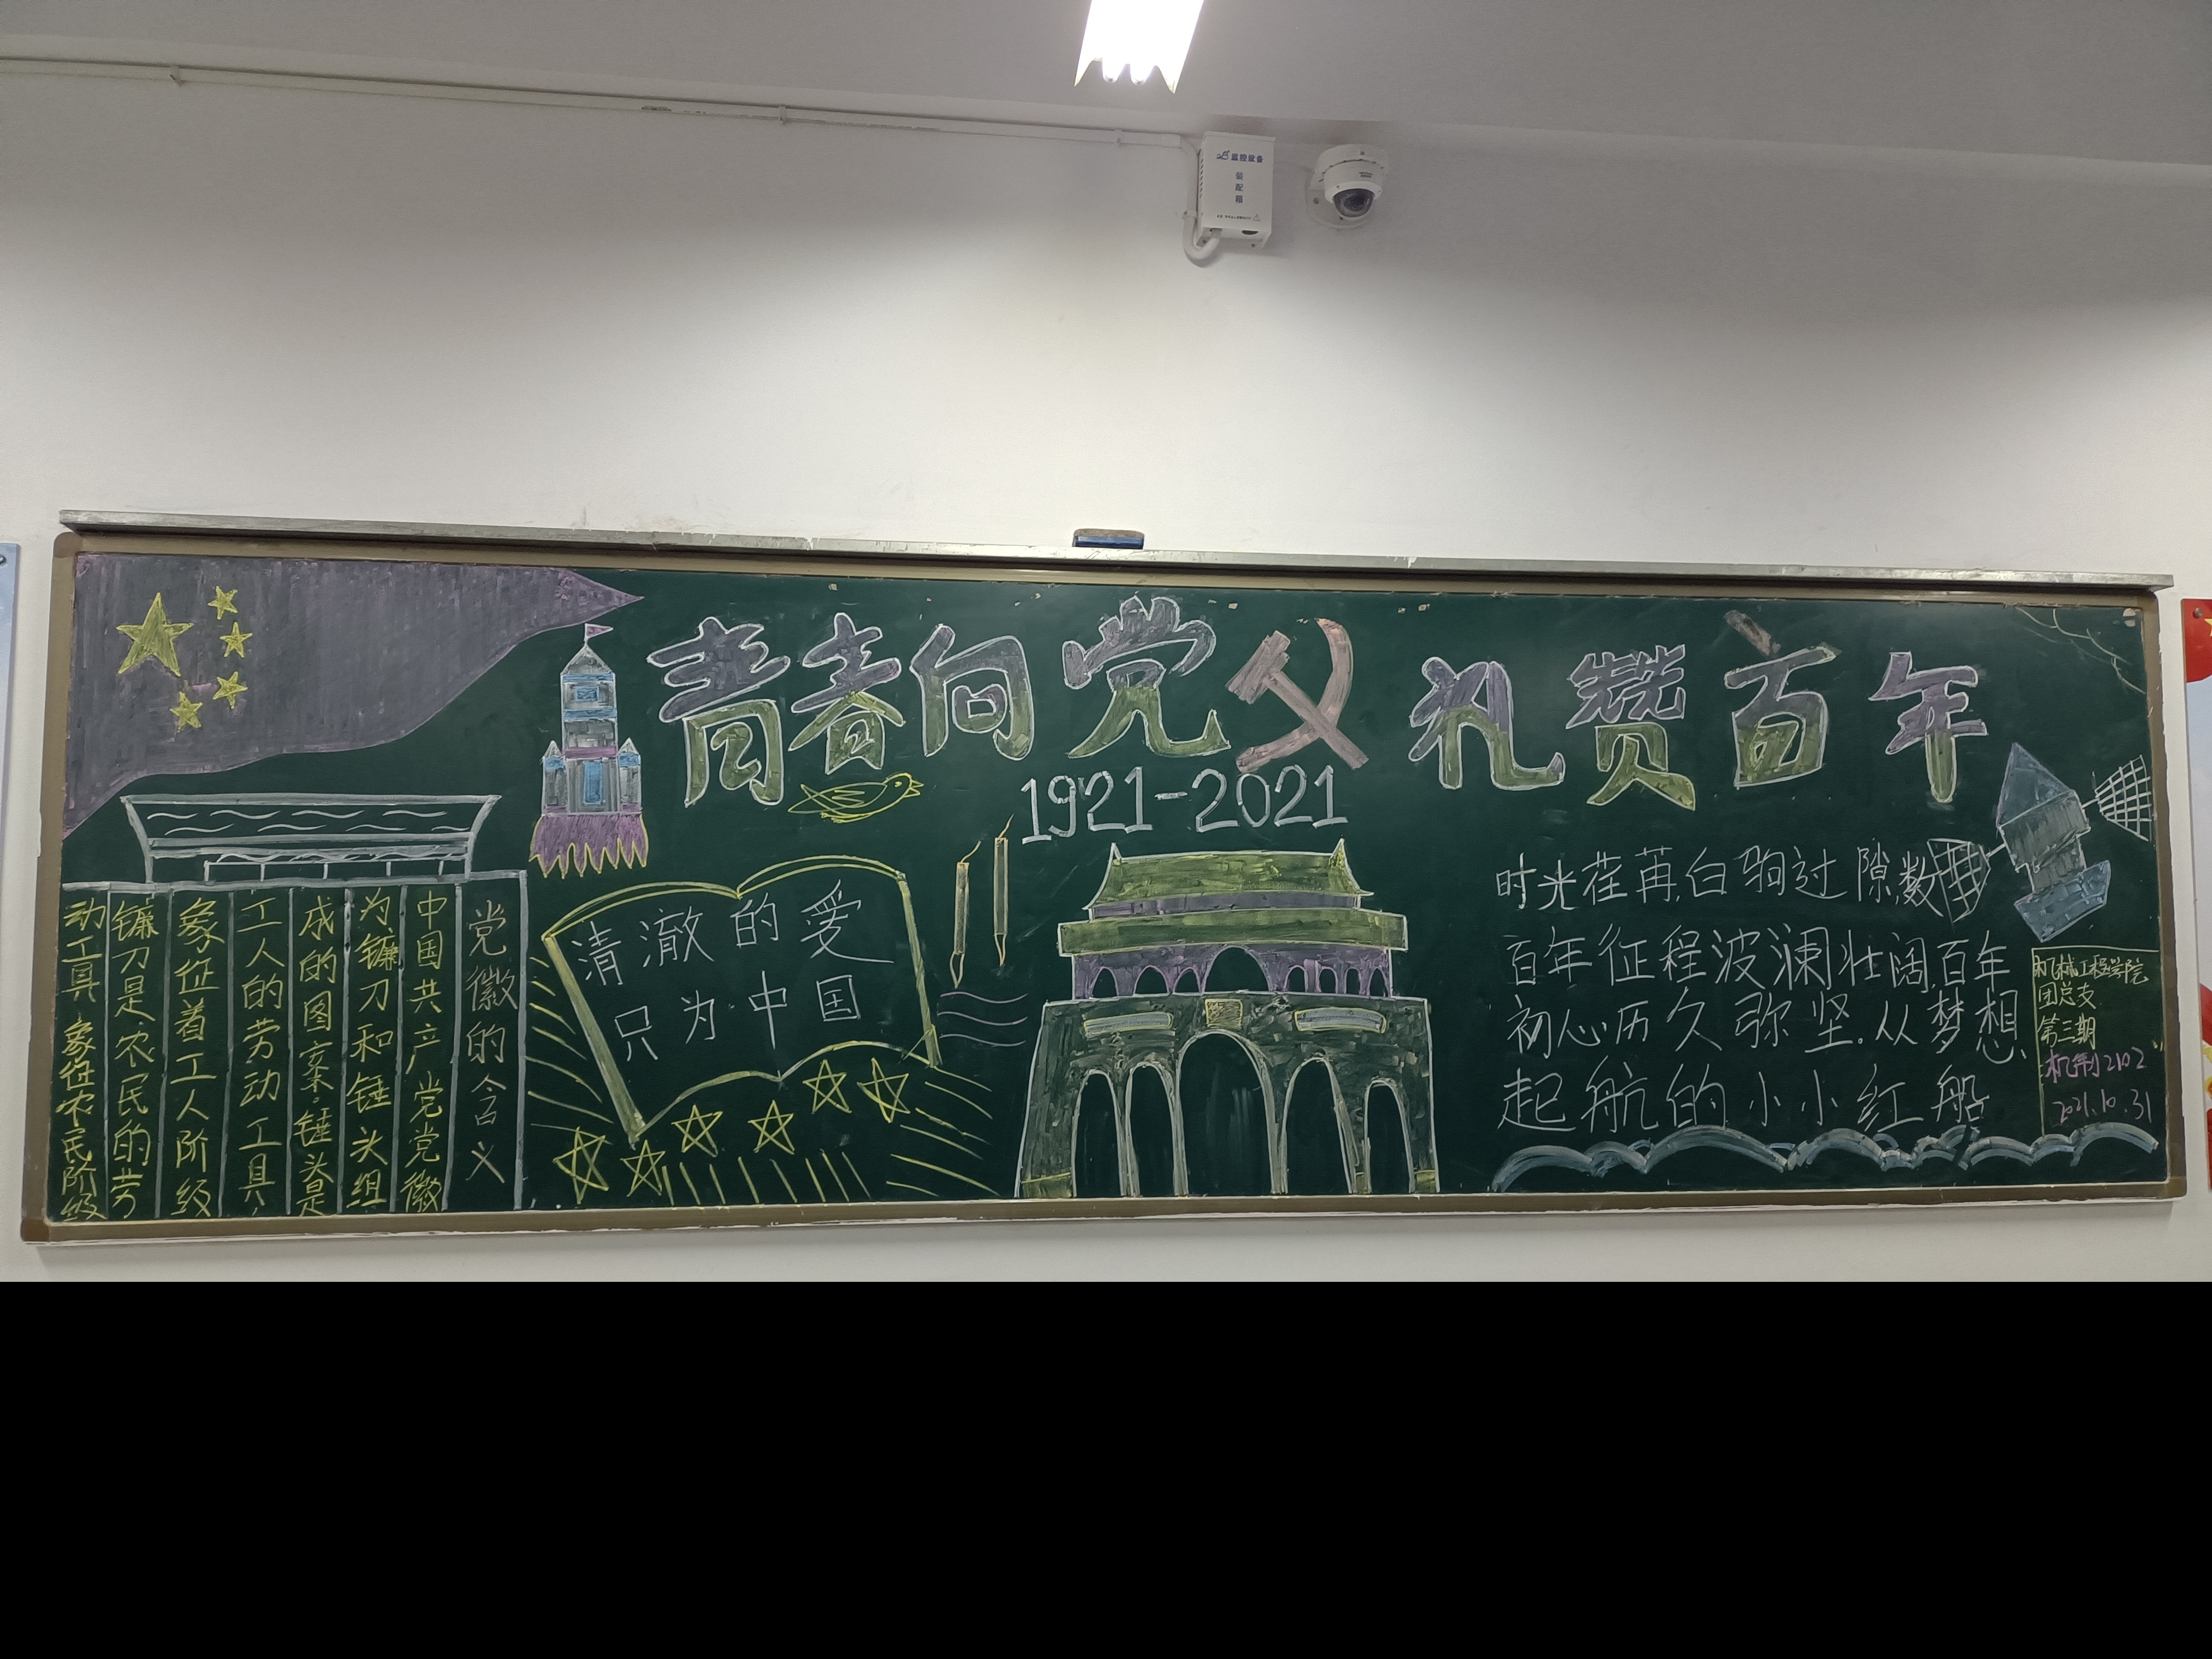 监控设备
装配箱
青春向党 礼赞百年
1921-2021
党徽的含义
中国共产党党徽
为镰刀和锤头组
成的图案.锤头是
工人的劳动工具,
象征着工人阶级
镰刀是农民的劳
动工具,象征农民阶级
清澈的爱
只为中国
时光荏苒,白驹过隙,数
百年征程波澜壮阔,百年
初心历久弥坚.从梦想
起航的小小红船
机械工程学院
团总支
第三期
机制2102
2021.10.31